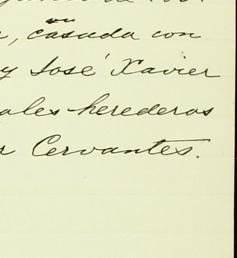 , casada con
y José Xavier
ales herederos
r Cervantes.